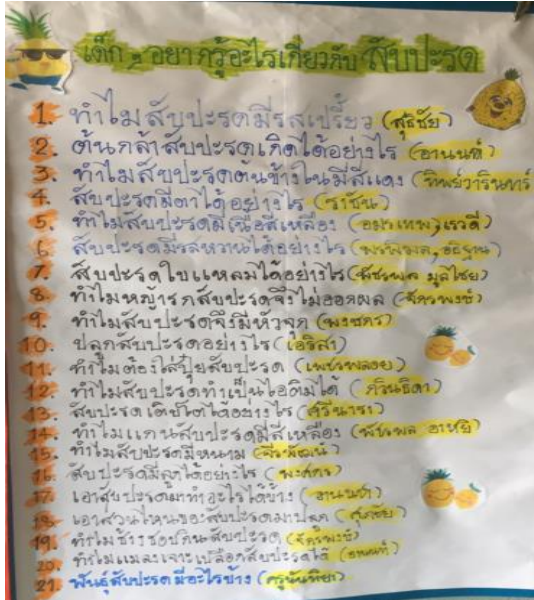 เด็ก ๆ อยากรู้อะไรเกี่ยวกับ สับปะรด
1. ทำไมสับปะรดมีรสเปรี้ยว (สุธิชัย)
2. ต้นกล้าสับปะรดเกิดได้อย่างไร (อานนท์)
3. ทำไมสับปะรดต้นข้างในมีสีแดง (ทิพย์วารินทร์)
4. สับปะรดมีตาได้อย่างไร (ราชัน)
5. ทำไมสับปะรดมีเนื้อสีเหลือง (อมรเทพ, เรวดี)
6. สับปะรดมีรสหวานได้อย่างไร (พรพิมล,
7. สับปะรดใบแหลมได้อย่างไร (พัชรพล
8. ทำไมหญ้ารกสับปะรดจึงไม่ออกผล (จักรพงษ์)
9. ทำไมสับปะรดจึงมีหัวจุก (พงศกร)
10. ปลูกสับปะรดอย่างไร (เอริสา)
11. ทำไมต้องใส่ปุ๋ยสับปะรด (เพชรพลอย)
12. ทำไมสับปะรดทำเป็นไอติมได้ (ภวินธิดา)
13. สับปะรดเติบโตได้อย่างไร (สุรีนารา)
14. ทำไมแกนสับปะรดมีสีเหลือง (พัชรพล
15. ทำไมสับปะรดมีหนาม (จีรพัฒน์)
16. สับปะรดมีลูกได้อย่างไร (พงศกร)
17. เอาสับปะรดมาทำอะไรได้บ้าง (อานนท์)
18. เอาส่วนไหนของสับปะรดมาปลูก (สุธิชัย)
19. ทำไมช้างชอบกินสับปะรด (จักรพงษ์)
20. ทำไมแมลงเจาะเปลือกสับปะรดได้ (อานนท์)
21. พันธุ์สับปะรดมีอะไรบ้าง (ครูนันทิยา)